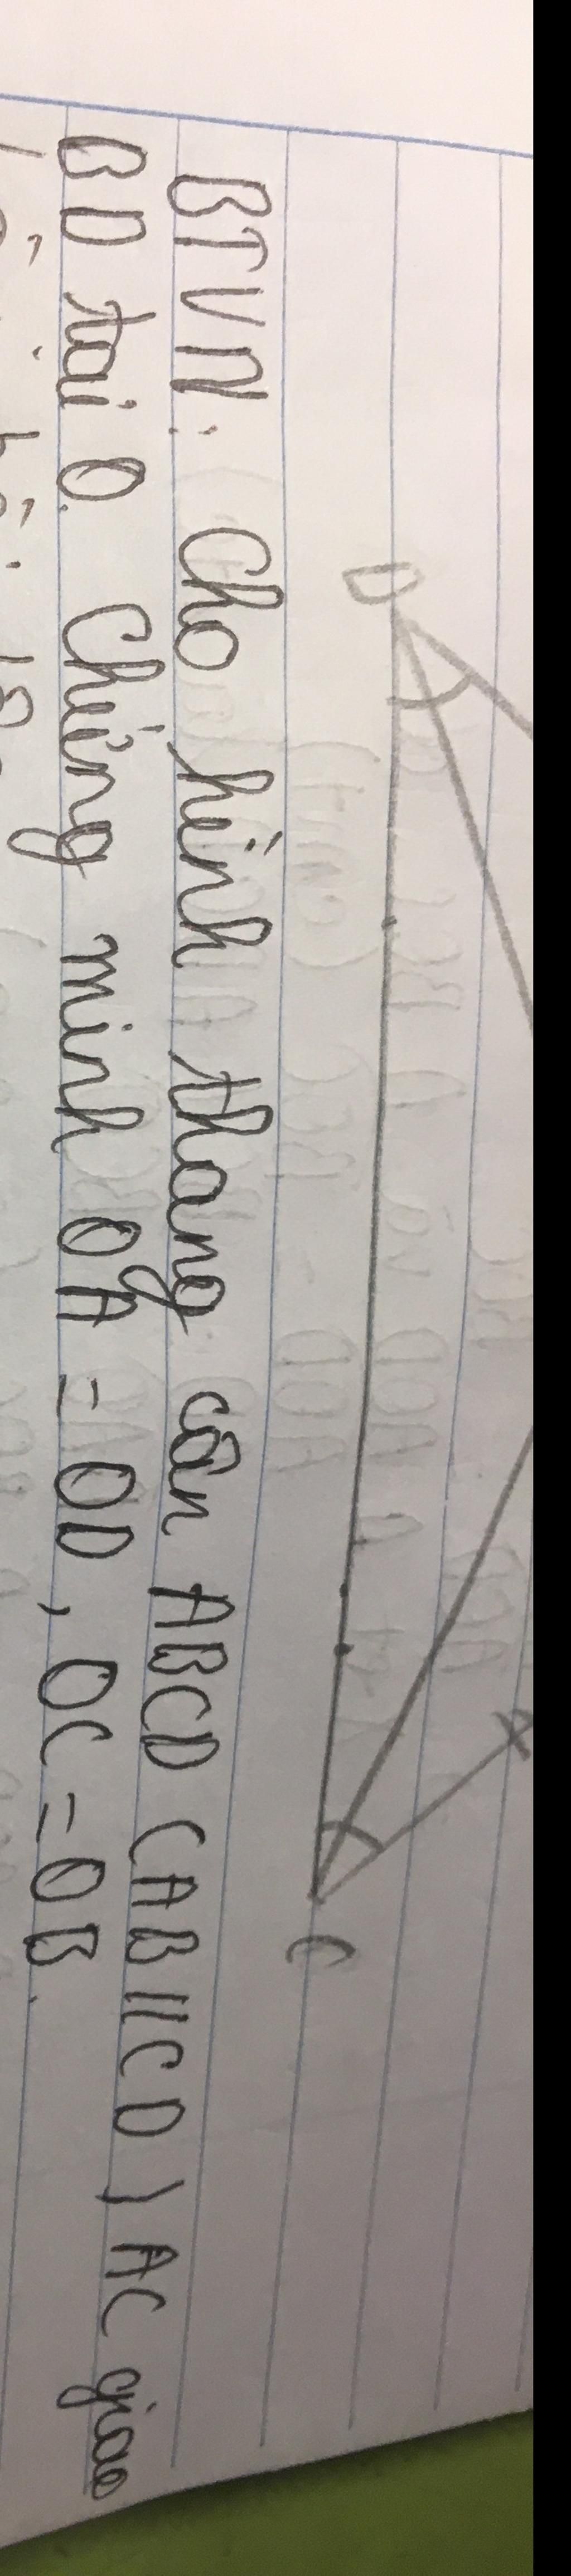 D
C
BTVN: Cho hình thang cân ABCD (AB//CD) AC giao
BD tại O. Chứng minh OA = OD, OC = OB.